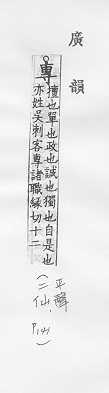 廣韻
專
擅也單也政也誠也獨也自是也
亦姓吳刺客專諸職緣切十二
(平聲
二仙.
P.141)